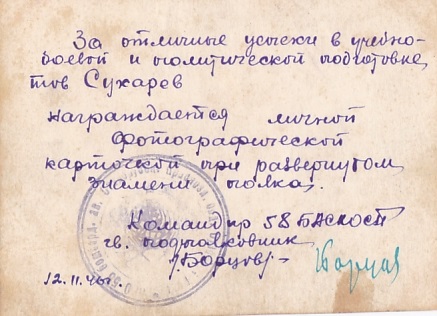 За отличные успехи в учебно-
боевой и политической подготовке
тов Сухарев
награждается личной
фотографической
карточкой при развернутом
знамени полка.
Командир 58
гв. подполковник
/Борцов/-
Борцов
12.11.46г.